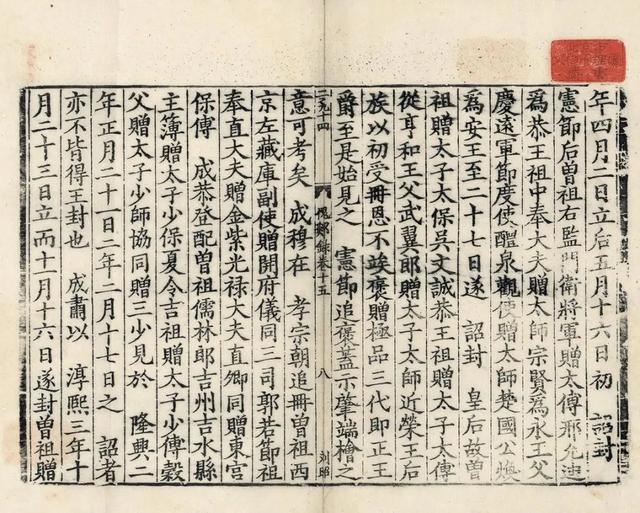 年四月二日立后五月十六日初　詔封
憲節后曾祖右監門衛將軍贈太傅邢允迪
爲恭王祖中奉大夫贈太師宗賢爲永王父
慶遠軍節度使醴泉觀使贈太師楚國公煥
爲安王至二十七日遂　詔封　皇后故曾
祖贈太子太保吳文誠恭王祖贈太子太傅
從亨和王父武翼郎贈太子太師近榮王后
族以初受冊恩不竢褒贈極品三代即正王
爵至是始見之　憲節追褒蓋示肇端檜之
二九十四
愧郯錄卷十五
八
意可考矣　成穆在　孝宗朝追冊曾祖西
京左藏庫副使贈開府儀同三司郭若節祖
奉直大夫贈金紫光祿大夫直卿同贈東宮
保傅　成恭登配曾祖儒林郎吉州吉水縣
主簿贈太子少保夏令吉祖贈太子少傅穀
父贈太子少師協同贈三少見於　隆興二
年正月二十一日二年二月十七日之　詔者
亦不皆得王封也　成肅以　淳熙三年十
月二十三日立而十一月十六日遂封曾祖贈